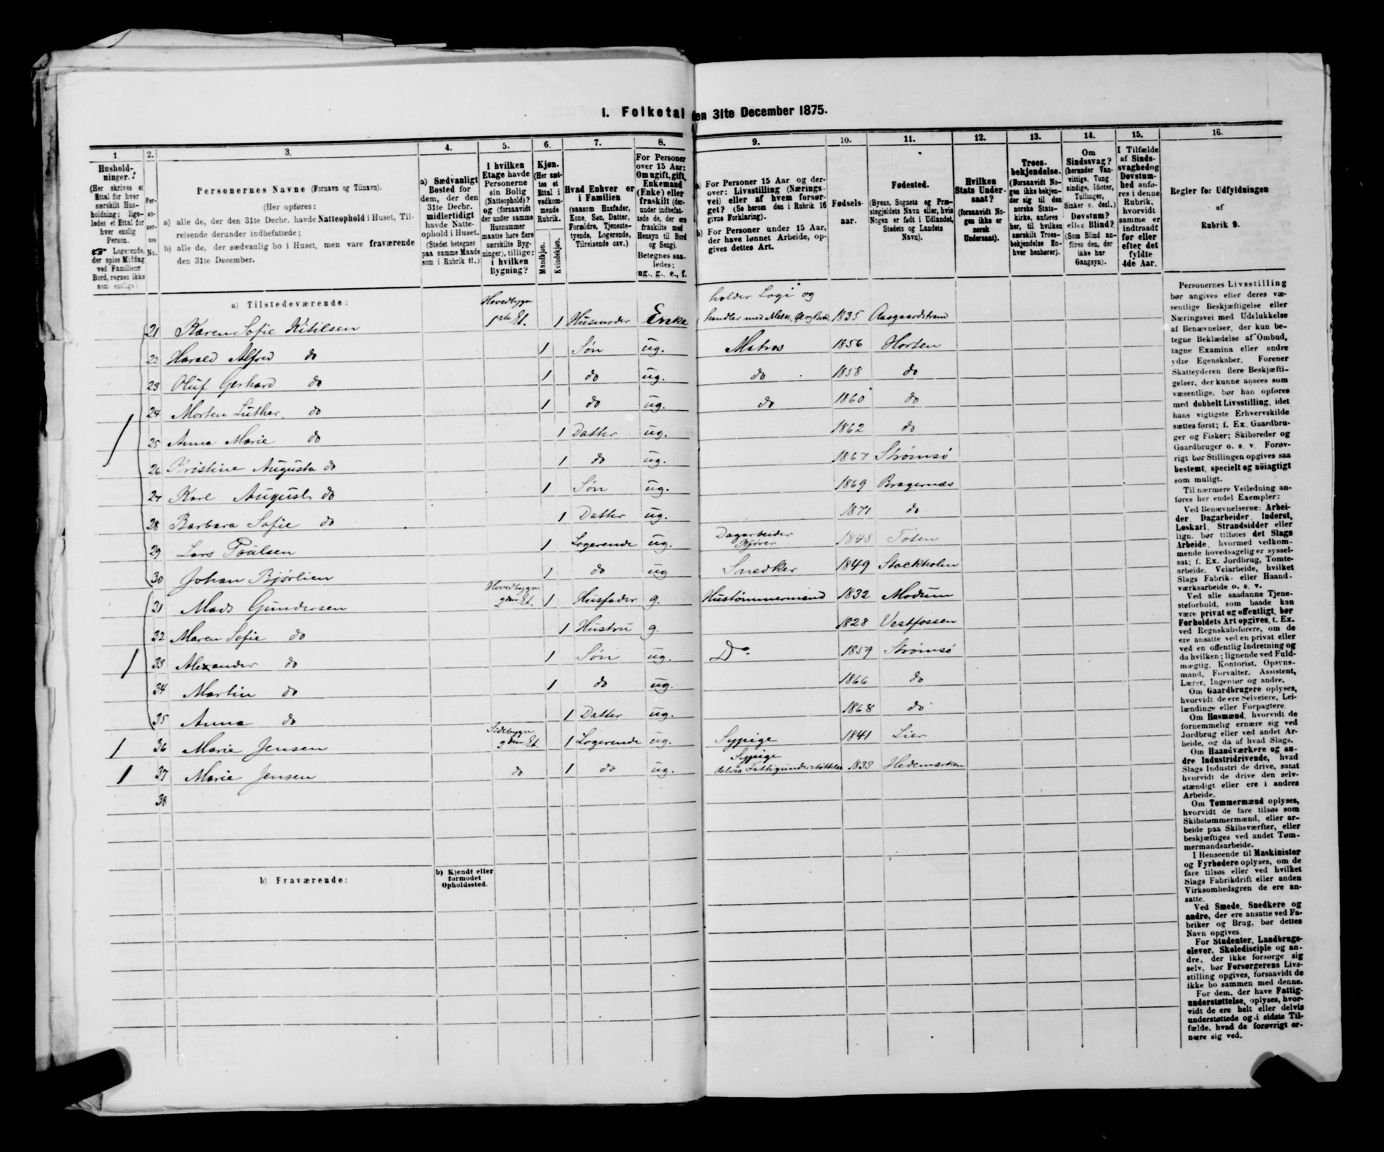 I. Folketal den 31te December 1875.
1. 2. 3. 4. 5. 6. 7. 8. 9. 10. 11. 12. 13. 14. 15. 16.
Hushold-
ninger.
(Her skrives et
Ettal for hver
særskilt Hus-
holdning; lige-
ledes et Ettal for
hver enslig
Person.
☞ Logerende,
der spise Middag
ved Familiens
Bord, regnes ikke
som enslige.)
Per-
so-
ner-
nes
No.
Personernes Navne (Fornavn og Tilnavn).
(Her opføres:
a) alle de, der den 31te Decbr. havde Natteophold i Huset, Til-
reisende derunder indbefattede;
b) alle de, der sædvanlig bo i Huset, men vare fraværende
den 31te December.
a) Sædvanligt
Bosted for
dem, der den
31te Decbr.
midlertidigt
havde Natte-
ophold i Huset.
(Stedet betegnes
paa samme Maade
som i Rubrik 11.)
I hvilken
Etage havde
Personerne
sin Bolig
(Natteophold)?
og (forsaavidt
der under samme
Husnummer
maatte høre flere
særskilte Byg-
ninger), tillige:
i hvilken
Bygning?
Kjøn.
(Her sæt-
tes et
Ettal i
vedkom-
mende
Rubrik.)
Mandkjøn.
Kvindekjøn.
Hvad Enhver er
i Familien
(saasom Husfader,
Kone, Søn, Datter,
Forældre, Tjeneste-
tyende, Logerende,
Tilreisende osv.)
For Personer
over 15 Aar:
Om ugift, gift,
Enkemand
(Enke) eller
fraskilt (der-
under indbefat-
tede de, der ere
fraskilte med
Hensyn til Bord
og Seng).
Betegnes saa-
ledes:
ug., g., e., f.
a) For Personer 15 Aar og der-
over: Livsstilling (Nærings-
vei) eller af hvem forsør-
get? (Se herom den i Rubrik 16
givne Forklaring).
b) For Personer under 15 Aar,
der have lønnet Arbeide, op-
gives dettes Art.
Fødsels-
aar.
Fødested.
(Byens, Sognets og Præ-
stegjeldets Navn eller, hvis
Nogen er født i Udlandet,
Stedets og Landets
Navn).
Hvilken
Stats Under-
saat?
(forsaavidt No-
gen ikke er
norsk
Undersaat).
Troes-
bekjendelse.
(Forsaavidt No-
gen ikke bekjen-
der sig til den
norske Stats-
kirke, anføres
her, til hvilken
særskilt Troes-
bekjendelse En-
hver henhører).
Om
Sindssvag?
(herunder Van-
vittige, Tung-
sindige, Idioter,
Tullinger,
Sinker o. desl.)
Døvstum?
eller Blind?
(Som Blind an-
føres den, der
ikke har
Gangsyn).
I Tilfælde
af Sinds-
svaghed og
Døvstum-
hed anfø-
res i denne
Rubrik,
hvorvidt
samme er
indtraadt
før eller
efter det
fyldte
4de Aar.
Regler for Udfyldningen
af
Rubrik 9.
a) Tilstedeværende:
21 Karen Sofie Ketilsen Hovedbygn 1ste Et. 1 Husmoder Enke holder Logi og handler med 1835 Aasgaardstran
22 Harald Alfred do 1 Søn ug. Matros 1856 Horten
23 Oluf Gerhard do 1 do ug. do 1858 do
24 Morten Luther do 1 do ug. do 1860 do
1 25 Anna Marie do 1 Datter ug. 1862 do
26 Kristine Augusta do 1 do ug. 1867 Strømsø
27 Karl August do 1 Søn ug. 1869 Bragernæs
28 Barbara Sofie do 1 Datter ug. 1871 do
29 Lars Poulsen 1 Logerende ug. Dagarbeider 1848 Toten
30 Johan Bjørlien 1 do ug Snedker 1849 Stockholm
31 Mads Gundersen Hovedbygn 2den Et. 1 Husfader g. Hustømmermand 1832 Modum
32 Maren Sofie do 1 Hustru g. 1828 Vestfossen
1 33 Alexander do 1 Søn ug. Do. 1859 Strømsø
34 Martin do 1 do ug. 1866 do
35 Anna do 1 Datter ug. 1868 do
1 36 Maria Jensen Sidebygn 2den Et. 1 Logerende ug. Sypige 1841 Lier
1 37 Maria Jensen do 1 do ug. Sypige delvis Fattigunderstøttelse 1833 Hedemarken
38
b) Fraværende:
b) Kjendt eller
formodet
Opholdssted.
Personernes Livsstilling
bør angives efter deres væ-
sentlige Beskjæftigelse eller
Næringsvei med Udelukkelse
af Benævnelser, der kun be-
tegne Beklædelse af Ombud,
tagne Examina eller andre
ydre Egenskaber. Forener
Skatteyderen flere Beskjæfti-
gelser, der kunne ansees som
væsentlige, bør han opføres
med dobbelt Livsstilling, idet
hans vigtigste Erhvervskilde
sættes først; f. Ex. Gaardbru-
ger og Fisker; Skibsreder og
Gaardbruger o. s. v. Forøv-
rigt bør Stillingen opgives saa
bestemt, specielt og nøiagtigt
som muligt.
Til nærmere Veiledning an-
føres her endel Exempler:
Ved Benævnelserne: Arbei-
der, Dagarbeider, Inderst,
Løskarl, Strandsidder eller
lign. bør tilføies det Slags
Arbeide, hvormed vedkom-
mende hovedsagelig er syssel-
sat; f. Ex. Jordbrug, Tomte-
arbeide, Veiarbeide, hvilket
Slags Fabrik- eller Haand-
værksarbeide o. s. v.
Ved alle saadanne Tjene-
steforhold, som baade kan
være privat og offentligt, bør
Forholdets Art opgives, f. Ex.
ved Regnskabsførere, om de
ere ansatte ved en privat eller
ved en offentlig Indretning og
da hvilken; lignende ved Fuld-
mægtig, Kontorist, Opsyns-
mand, Forvalter, Assistent,
Lærer, Ingeniør og andre.
Om Gaardbrugere oplyses,
hvorvidt de ere Selveiere, Lei-
lændinge eller Forpagtere.
Om Husmænd, hvorvidt de
fornemmelig ernære sig ved
Jordbrug eller ved andet Ar-
beide, og da af hvad Slags.
Om Haandværkere og an-
dre Industridrivende, hvad
Slags Industri de drive, samt
hvorvidt de drive den selv-
stændigt eller ere i andres
Arbeide.
Om Tømmermænd oplyses,
hvorvidt de fare tilsøs som
Skibstømmermænd, eller ar-
beide paa Skibsværfter, eller
beskjæftiges ved andet Tøm-
mermandsarbeide.
I Henseende til Maskinister
og Fyrbødere oplyses, om de
fare tilsøs eller ved hvilket
Slags Fabrikdrift eller anden
Virksomhedsgren de ere an-
satte.
Ved Smede, Snedkere og
andre, der ere ansatte ved Fa-
briker og Brug, bør dettes
Navn opgives.
For Studenter, Landbrugs-
elever, Skoledisciple og an-
dre, der ikke forsørge sig
selv, bør Forsørgerens Livs-
stilling opgives, forsaavidt de
ikke bo sammen med denne.
For dem, der have Fattig-
understøttelse, oplyses, hvor-
vidt de ere helt eller delvis
understøttede og i sidste Til-
fælde, hvad de forøvrigt er-
nære sig ved.